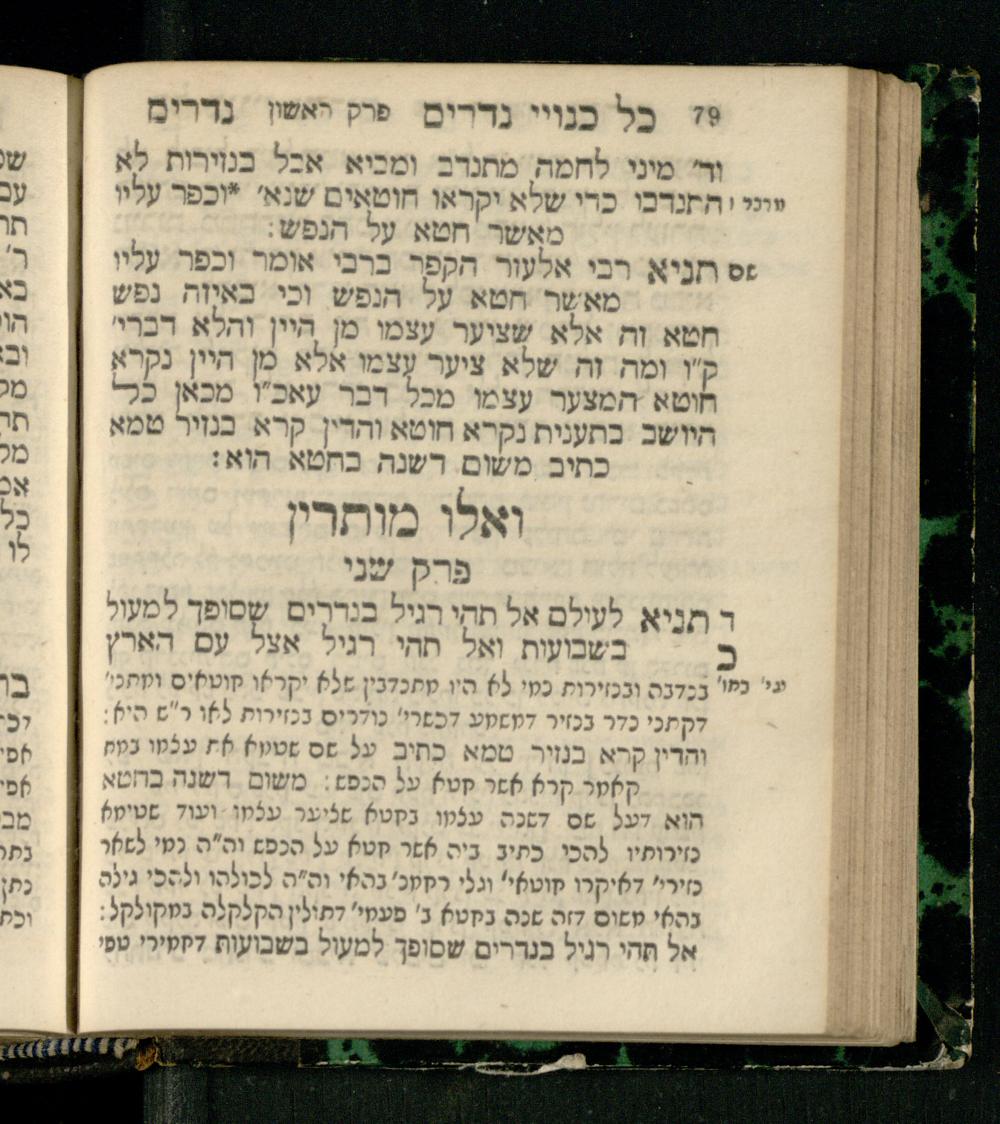 79 כל כנויי נדרים פרק ראשון נדרים
וד׳ מיני לחמה מתנדב ומביא אבל בנזירות לא
התנדבו כדי שלא יקראו חוטאים שנא׳ *וכפר עליו
מאשר חטא על הנפש:
שם תניא רבי אלעזר הקפר ברבי אומר וכפר עליו
מאשר חטא על הנפש וכי באיזה נפש
חטא זה אלא שציער עצמו מן היין והלא דברי׳
ק״ו ומה זה שלא ציער עצמו אלא מן היין נקרא
חוטא המצער עצמו מכל דבר עאכ״ו מכאן כל
היושב בתענית נקרא חוטא והדין קרא בנזיר טמא
כתיב משום דשנה בחטא הוא:
ואלו מותרין
פרק שני
ד תניא לעולם אל תהי רגיל בנדרים שסופך למעול
כ בשבועות ואל תהי רגיל אצל עם הארץ
בנדבה ובנזירות נמי לא היו מתנדבין שלא יקראו חוטאים ומתני׳
דקתני נדר בנזיר דמשמע דכשרי׳ נודרים בנזירות לאו ר״ש היא:
והדין קרא בנזיר טמא כתיב על שם שטמא את עצמו במת
קאמר קרא אשר חטא על הנפש: משום דשנה בחטא
הוא דעל שם דשנה עצמו בחטא שציער עצמו ועוד שטימא
נזירותיו להכי כתיב ביה אשר חטא על הנפש וה״ה נמי לשאר
נזירי׳ דאיקרו חוטאי׳ וגלי רחמנ׳ בהאי וה״ה לכולהו ולהכי גילה
בהאי משום דזה שנה בחטא ב׳ פעמי׳ דתולין הקלקלה במקולקל:
אל תהי רגיל בנדרים שסופך למעול בשבועות דחמירי טפי